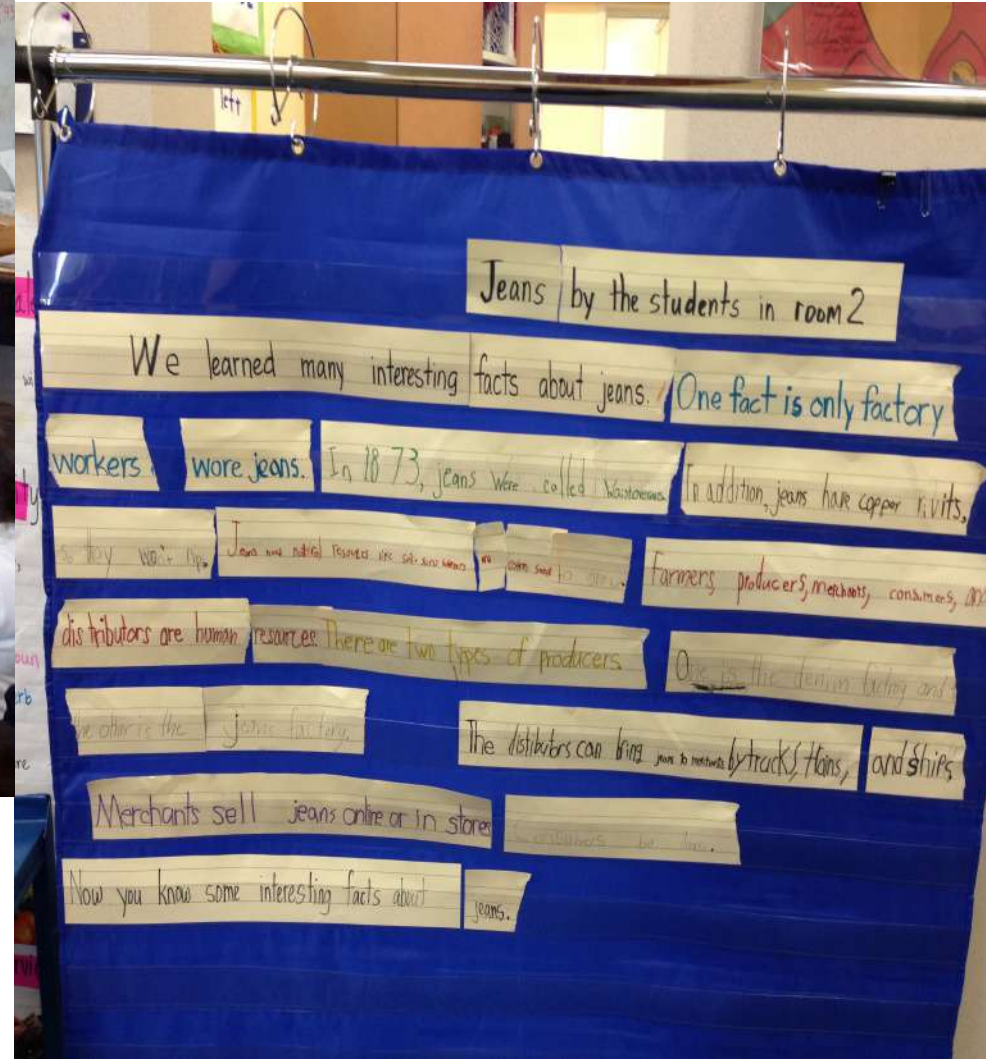 left
Jeans by the students in room 2
We learned many interesting facts about jeans. One fact is only factory
workers wore jeans. In 1873, jeans were called In addition, jeans have copper rivits,
so they won't rip. Jeans need natural resources like soil, and cotton seed to grow. Farmers, producers, merchants, consumers, and
distributors are human resources. There are two types of producers. One is the denim factory and
the other is the jeans factory. The distibutors can bring jeans to merchants by trucks, trains, and ships.
Merchants sell jeans online or in stores
Now you know some interesting facts about jeans.